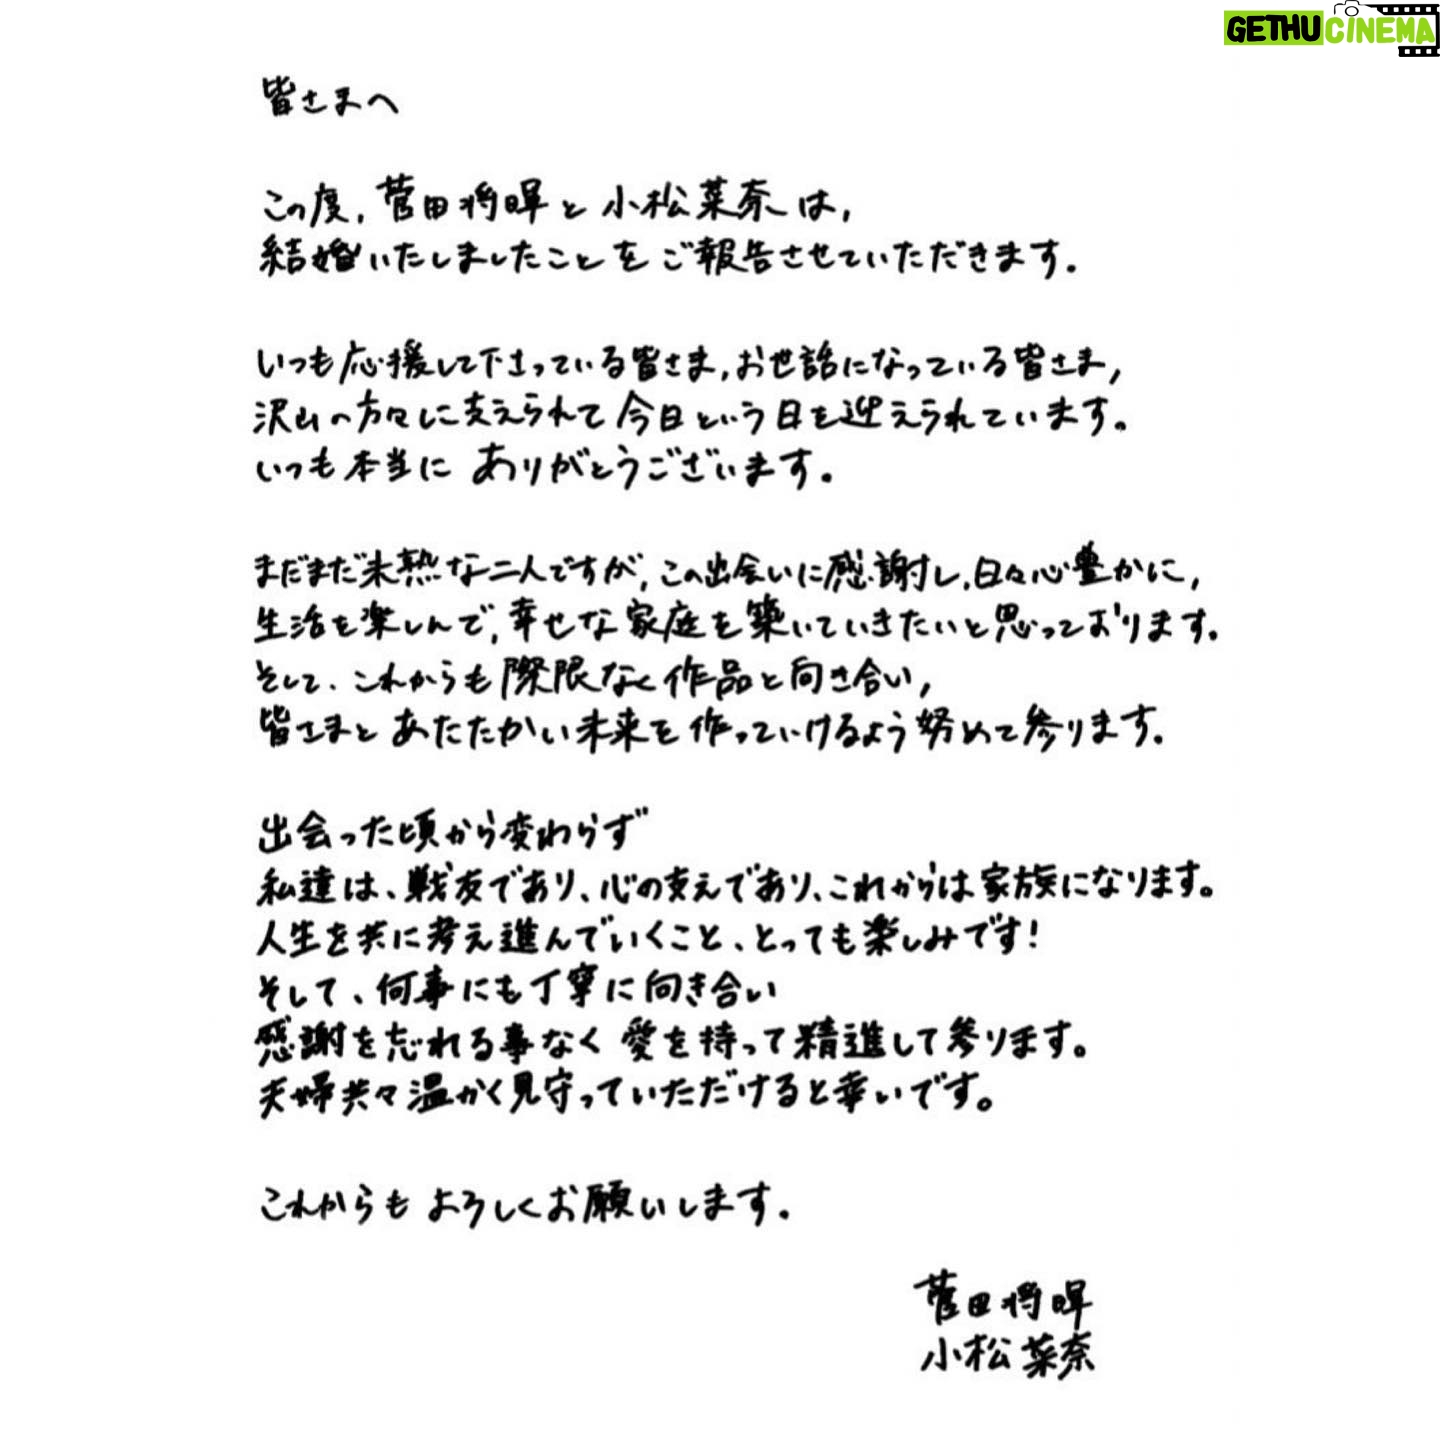 GETHUCINEMA
皆さまへ
この度, 菅田将暉と小松菜奈は,
結婚いたしましたことをご報告させていただきます.
いつも応援して下さっている皆さま,お世話になっている皆さま,
沢山の方々に支えられて今日という日を迎えられています。
いつも本当に ありがとうございます。
まだまだ未熟な二人ですが, この出会いに感謝し,日々心豊かに,
生活を楽しんで,幸せな家庭を築いていきたいと思っております。
そして、これからも際限なく作品と向き合い,
皆さまと あたたかい未来を作っていけるよう努めて参ります.
出会った頃から変わらず
私達は、戦友であり、心の支えであり、これからは家族になります。
人生を共に考え進んでいくこと、とっても楽しみです!
そして、何事にも丁寧に向き合い
感謝を忘れる事なく 愛を持って精進して参ります。
夫婦共々温かく見守っていただけると幸いです。
これからも よろしくお願いします.
菅田将暉
小松菜奈